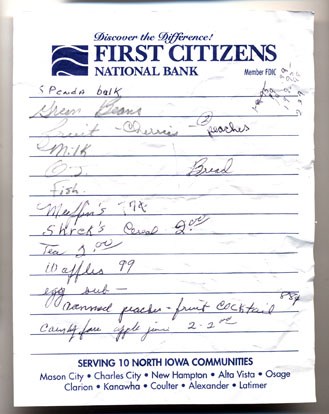 Discover the Difference!
FIRST CITIZENS
NATIONAL BANK
Member FDIC
Green Beans
Fruit - Cherries - Peaches
Milk
O.J. Bread
Fish
Muffin's
Cereal 2.00
Tea 2.00
Waffles 99
egg
peaches - fruit cocktail
apple 2-2.00
SERVING 10 NORTH IOWA COMMUNITIES
Mason City • Charles City • New Hampton • Alta Vista • Osage
Clarion • Kanawha • Coulter • Alexander • Latimer